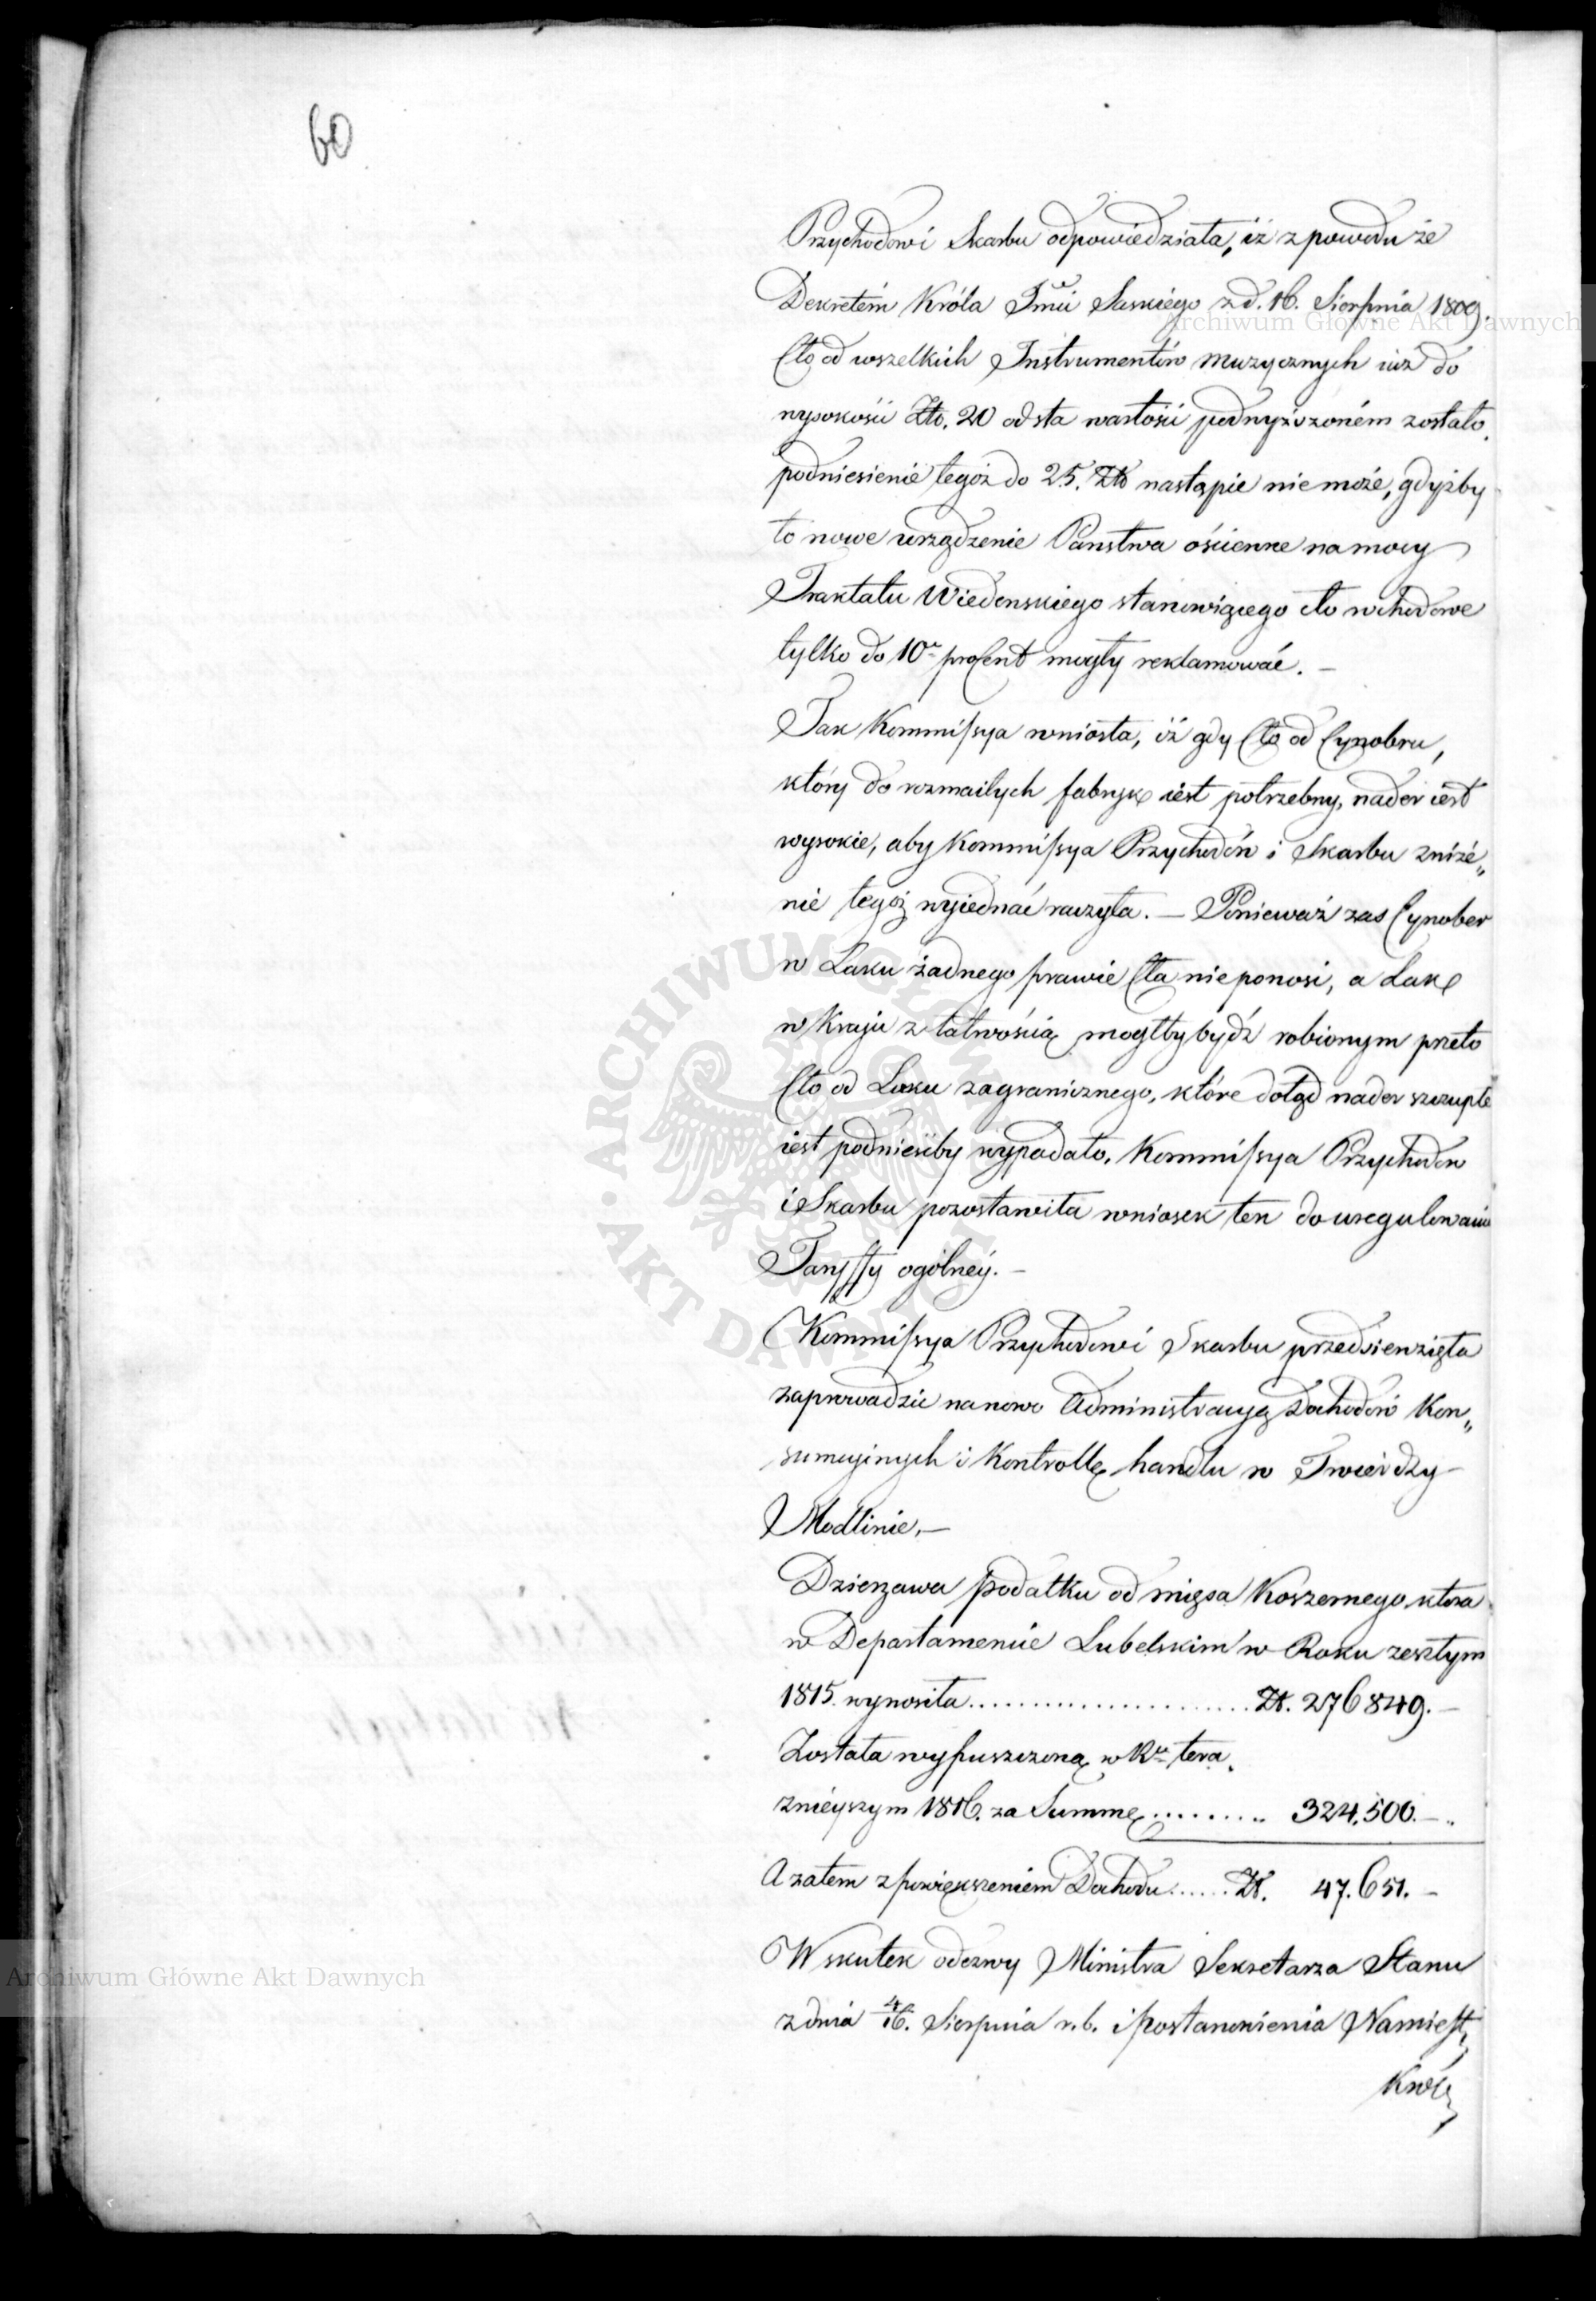 60
Przychodów i Skarbu odpowiedziała, iż z powodu że
Dekretem Króla Jmci Saskiego z d. 16. Sierpnia 1809.
Cło od wszelkich Instrumentów muzycznych iuż do
wysokości Zło. 20 od sta wartości podwyższoném zostało,
podniesienie tegóż do 25. Zło nastąpić nie może, gdyżby
to nowe urządzenie Państwa ościenne na mocy
Traktatu Wiedenskiego stanowiącego cło wchodowe
tylko do 10u procent mogły reklamować. –
Taż Kommissya wniosła, iż gdy Cło od Cynobru,
który do rozmaitych fabryk iest potrzebny, nader iest
wysokie, aby Kommissya Przychodów i Skarbu zniże„
nie tegoż wyiednać raczyła. – Ponieważ zas Cynober
w Laku żadnego prawie Cła nie ponosi, a Lak
w Kraju z łatwością mogłby bydź robionym przeto
Cło od Laku zagranicznego, które dotąd nader szczupłe
iest podnieśćby wypadało, Kommissya Przychodów
i Skarbu pozostawiła wniosek ten do uregulowania
Taryffy ogólnéy. –
Kommissya Przychodów i Skarbu przedsiewzięła
zaprowadzić na nowo Administracyą Dochodów Kon„
sumcyinych i Kontrollę handlu w Twierdzy
Modlinie. –
Dzierzawa podatku od mięsa Koszernego, która
w Departamencie Lubelskim w Roku zeszłym
1815. wynosiła ..................... Zł. 276849. –
Została wypuszczoną w Ru tera„
znieyszym 1816. za Summę ......... 324,500. – „
A zatem z powiększeniem Dochodu ...... Zł. 47.651. –
W skutek odezwy Ministra Sekretarza Stanu
z dnia 4/16. Sierpnia r. b. i postanowienia Namiest„
Archiwum Główne Akt Dawnych
Archiwum Główne Akt Dawnych
ARCHIWUM GŁÓWNE AKT DAWNYCH